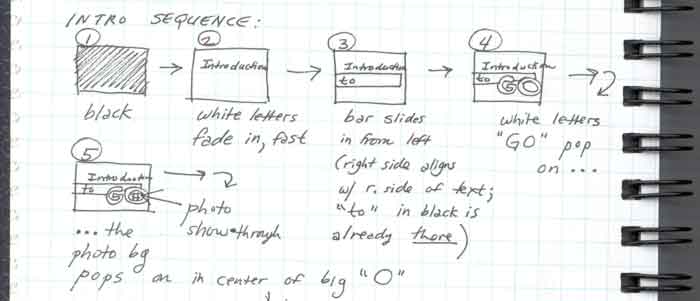 INTRO SEQUENCE:
1
2
3
4
Introduction
Introduction
to
Introduction
to
GO
black
white letters
fade in, fast
bar slides
in from left
(right side aligns
w/ r. side of text;
"to" in black is
already there)
white letters
"GO" pop
on ...
5
Introduction
to
GO
photo
show-through
... the
photo bg
pops on in center of big "O"